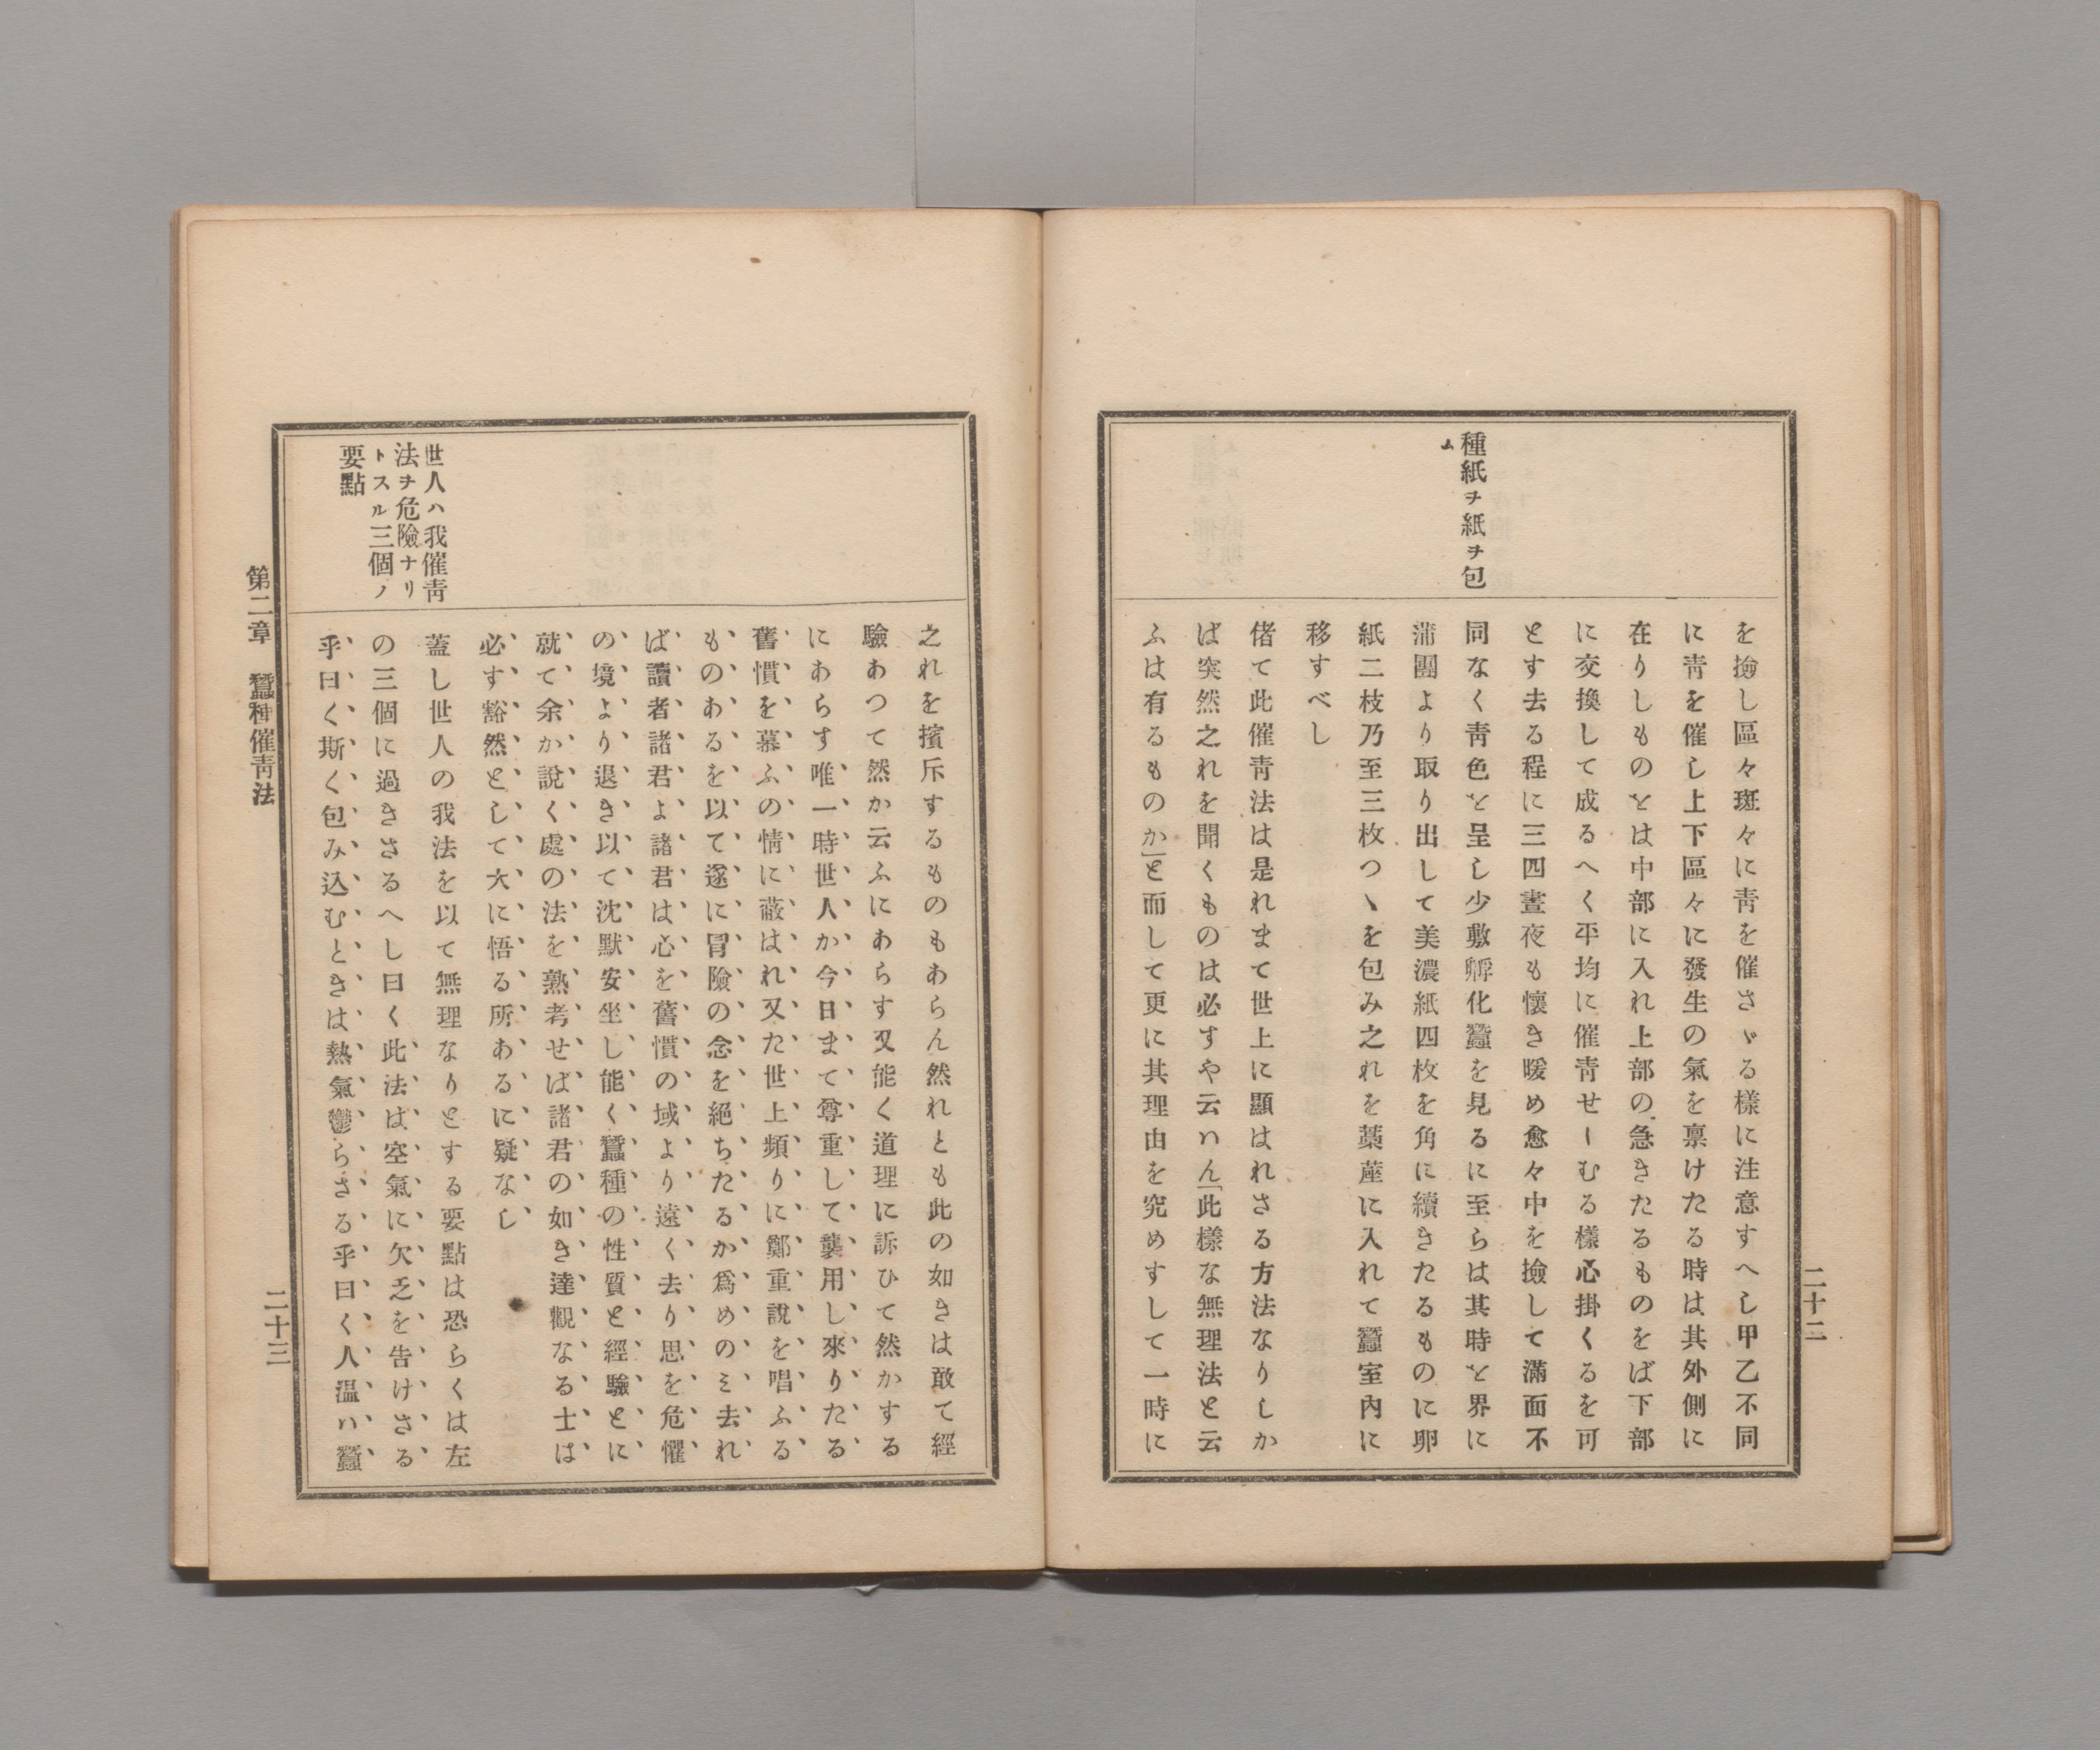 二十二
種紙ヲ紙ヲ包
ム
を撿し區々斑々に靑を催さゞる樣に注意すへし甲乙不同
に靑を催し上下區々に發生の氣を禀けたる時は其外側に
在りしものとは中部に入れ上部の急きたるものをば下部
に交換して成るへく平均に催靑せしむる樣心掛くるを可
とす去る程に三四晝夜も懷き暖め愈々中を撿して滿面不
同なく靑色を呈し少敷孵化蠶を見るに至らは其時を界に
蒲團より取り出して美濃紙四枚を角に續きたるものに卵
紙二枝乃至三枚つヽを包み之れを藁蓙に入れて蠶室內に
移すべし
偖て此催靑法は是れまて世上に顯はれさる方法なりしか
ば突然之れを聞くものは必すや云ハん「此樣な無理法と云
ふは有るものか」と而して更に其理由を究めすして一時に
之れを擯斥するものもあらん然れとも此の如きは敢て經
驗あつて然か云ふにあらす又能く道理に訴ひて然かする
にあらす唯一時世人か今日まて尊重して襲用し來りたる
舊慣を慕ふの情に蔽はれ又た世上頻りに鄭重說を唱ふる
ものあるを以て遂に冐險の念を絕ちたるか爲めのミ去れ
ば讀者諸君よ諸君は心を舊慣の域より遠く去り思を危懼
の境より退き以て沈默安坐し能く蠶種の性質と經驗とに
就て余か說く處の法を熟考せば諸君の如き達觀なる士は
必す豁然として大に悟る所あるに疑なし
世人ハ我催靑
法ヲ危險ナリ
トスル三個ノ
要點
蓋し世人の我法を以て無理なりとする要點は恐らくは左
の三個に過きさるへし曰く此法は空氣に欠乏を告けさる
乎曰く斯く包み込むときは熱氣鬱らさる乎曰く人温ハ蠶
第二章　蠶種催靑法
二十三